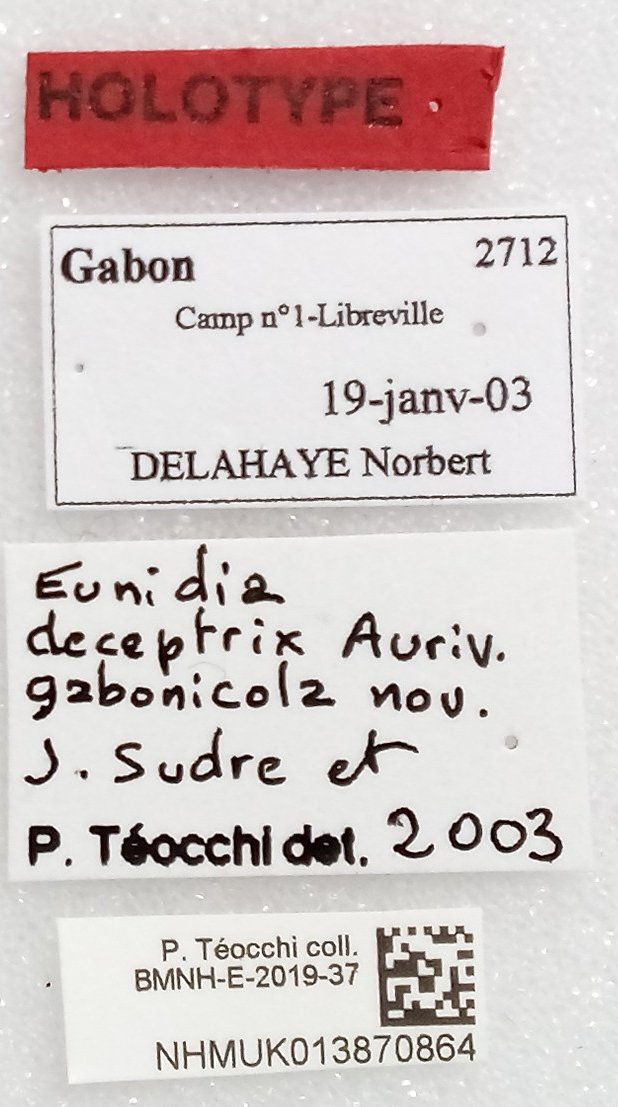 HOLOTYPE
Gabon 2712
Camp n°1-Libreville
19-janv-03
DELAHAYE Norbert
Eunidia
deceptrix Auriv.
gabonicola nov.
J. Sudre et
P. Téocchi det. 2003
P. Téocchi coll.
BMNH-E-2019-37
NHMUK013870864